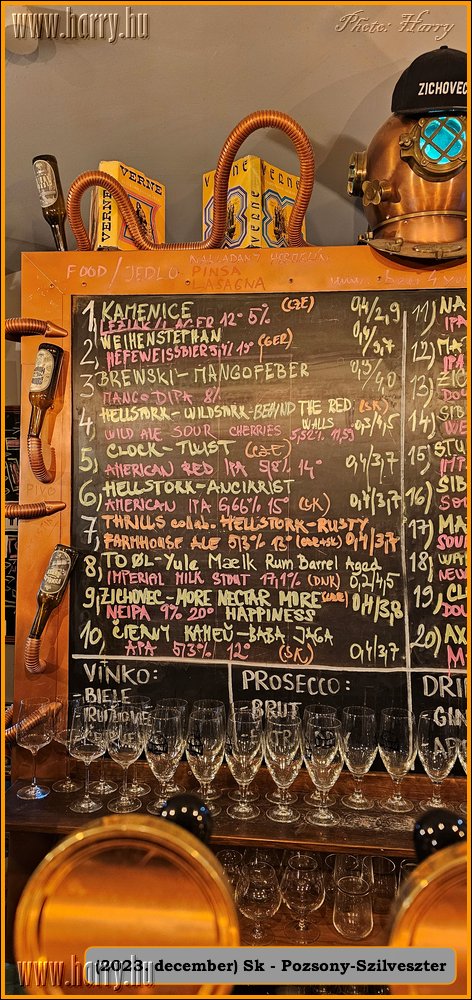 www.harry.hu
Photo: Harry
ZICHOVEC
VERNE
VERNE
VERNE
FOOD/JEDLO:
PINSA
LASAGNA
1, KAMENICE (CZE) 0,4/2,9
LEŽIAK/LAGER 12° 5%
2, WEIHENSTEPHAN 0,4/3,7
HEFEWEISSBIER 5,4% 13° (GER)
3 BREWSKI-MANGOFEBER 0,3/4,0
MANGO DIPA 8%
4 HELLSTORK-WILDSTORK-BEHIND THE RED WALLS (SK) 0,3/4,5
WILD ALE SOUR CHERRIES 5,52%
5, CLOCK-TWIST (CZE)
AMERICAN RED IPA 5,8% 14° 0,4/3,7
6, HELLSTORK-ANCIARIST
AMERICAN IPA 6,66% 15° (SK) 0,4/3,7
7, THRILLS collab. HELLSTORK-RUSTY
FARMHOUSE ALE 5,3% 13° 0,4/3,7
8, TO ØL-Yule Mælk Rum Barrel Aged
IMPERIAL MILK STOUT 17,1% (DNK) 0,2/4,5
9, ZICHOVEC-MORE NECTAR MORE HAPPINESS (CZE) 0,4/3,8
NEIPA 9% 20°
10, ČIERNY KAMEŇ-BABA JAGA
APA 5,3% 12° (SK) 0,4/3,7
11,
IPA
12,
13,
14,
15,
16,
17,
18,
19,
20,
VINKO:
-BIELE
PROSECCO:
-BRUT
DRI
-GIN
PIVO
www.harry.hu
(2023. december) Sk - Pozsony-Szilveszter